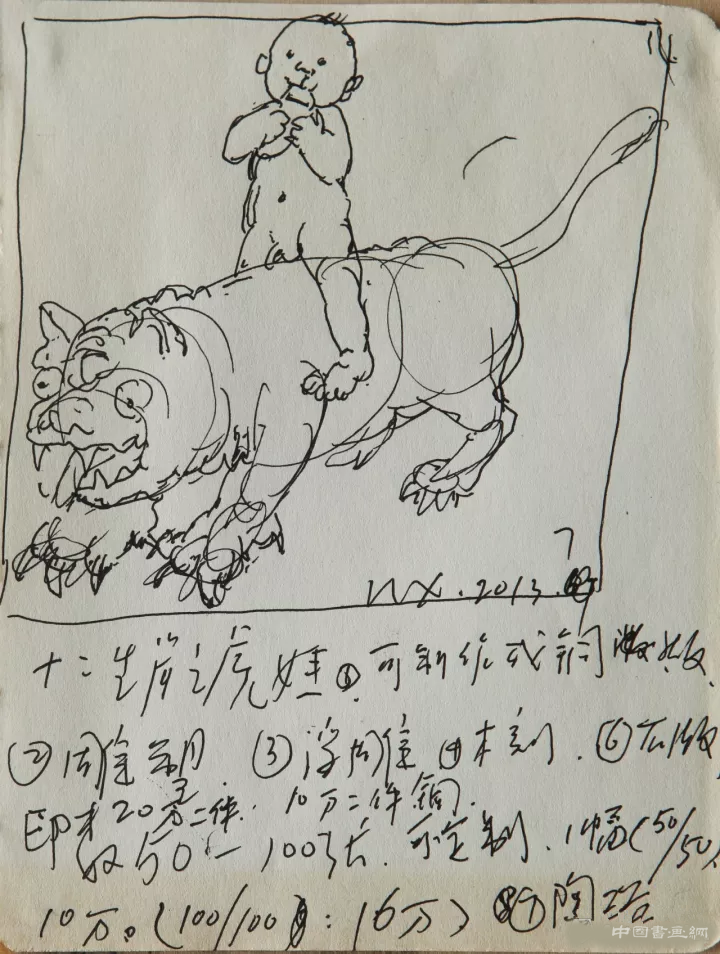 WX.2013.
十二生肖之虎娃①.可制作成铜版.
②圆雕 ③浮圆雕 ④木刻.⑥石版
印 20万二件. 10万二件铜.
50-100张.可定制.1幅(50/50)
10万。(100/100:16万) ⑦陶瓷
中国書画網